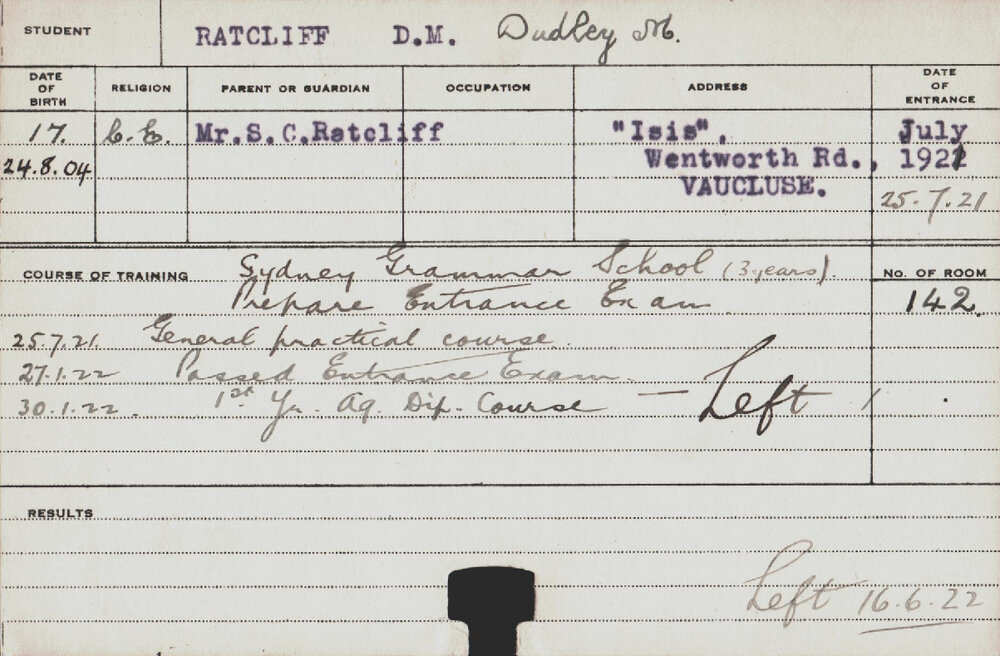 STUDENT RATCLIFF D.M. Dudley M.
DATE OF BIRTH RELIGION PARENT OR GUARDIAN OCCUPATION ADDRESS DATE OF ENTRANCE
17. C.E. Mr.S.C.Ratcliff "Isis", July
24.8.04 Wentworth Rd., 1921
VAUCLUSE.
25.7.21
COURSE OF TRAINING Sydney Grammar School (3 years). No. OF ROOM
Prepare Entrance Exam 142.
25.7.21 General practical course.
27.1.22 Passed Entrance Exam.
30.1.22. 1st Yr. Ag. Dip. Course — Left
RESULTS
Left 16.6.22